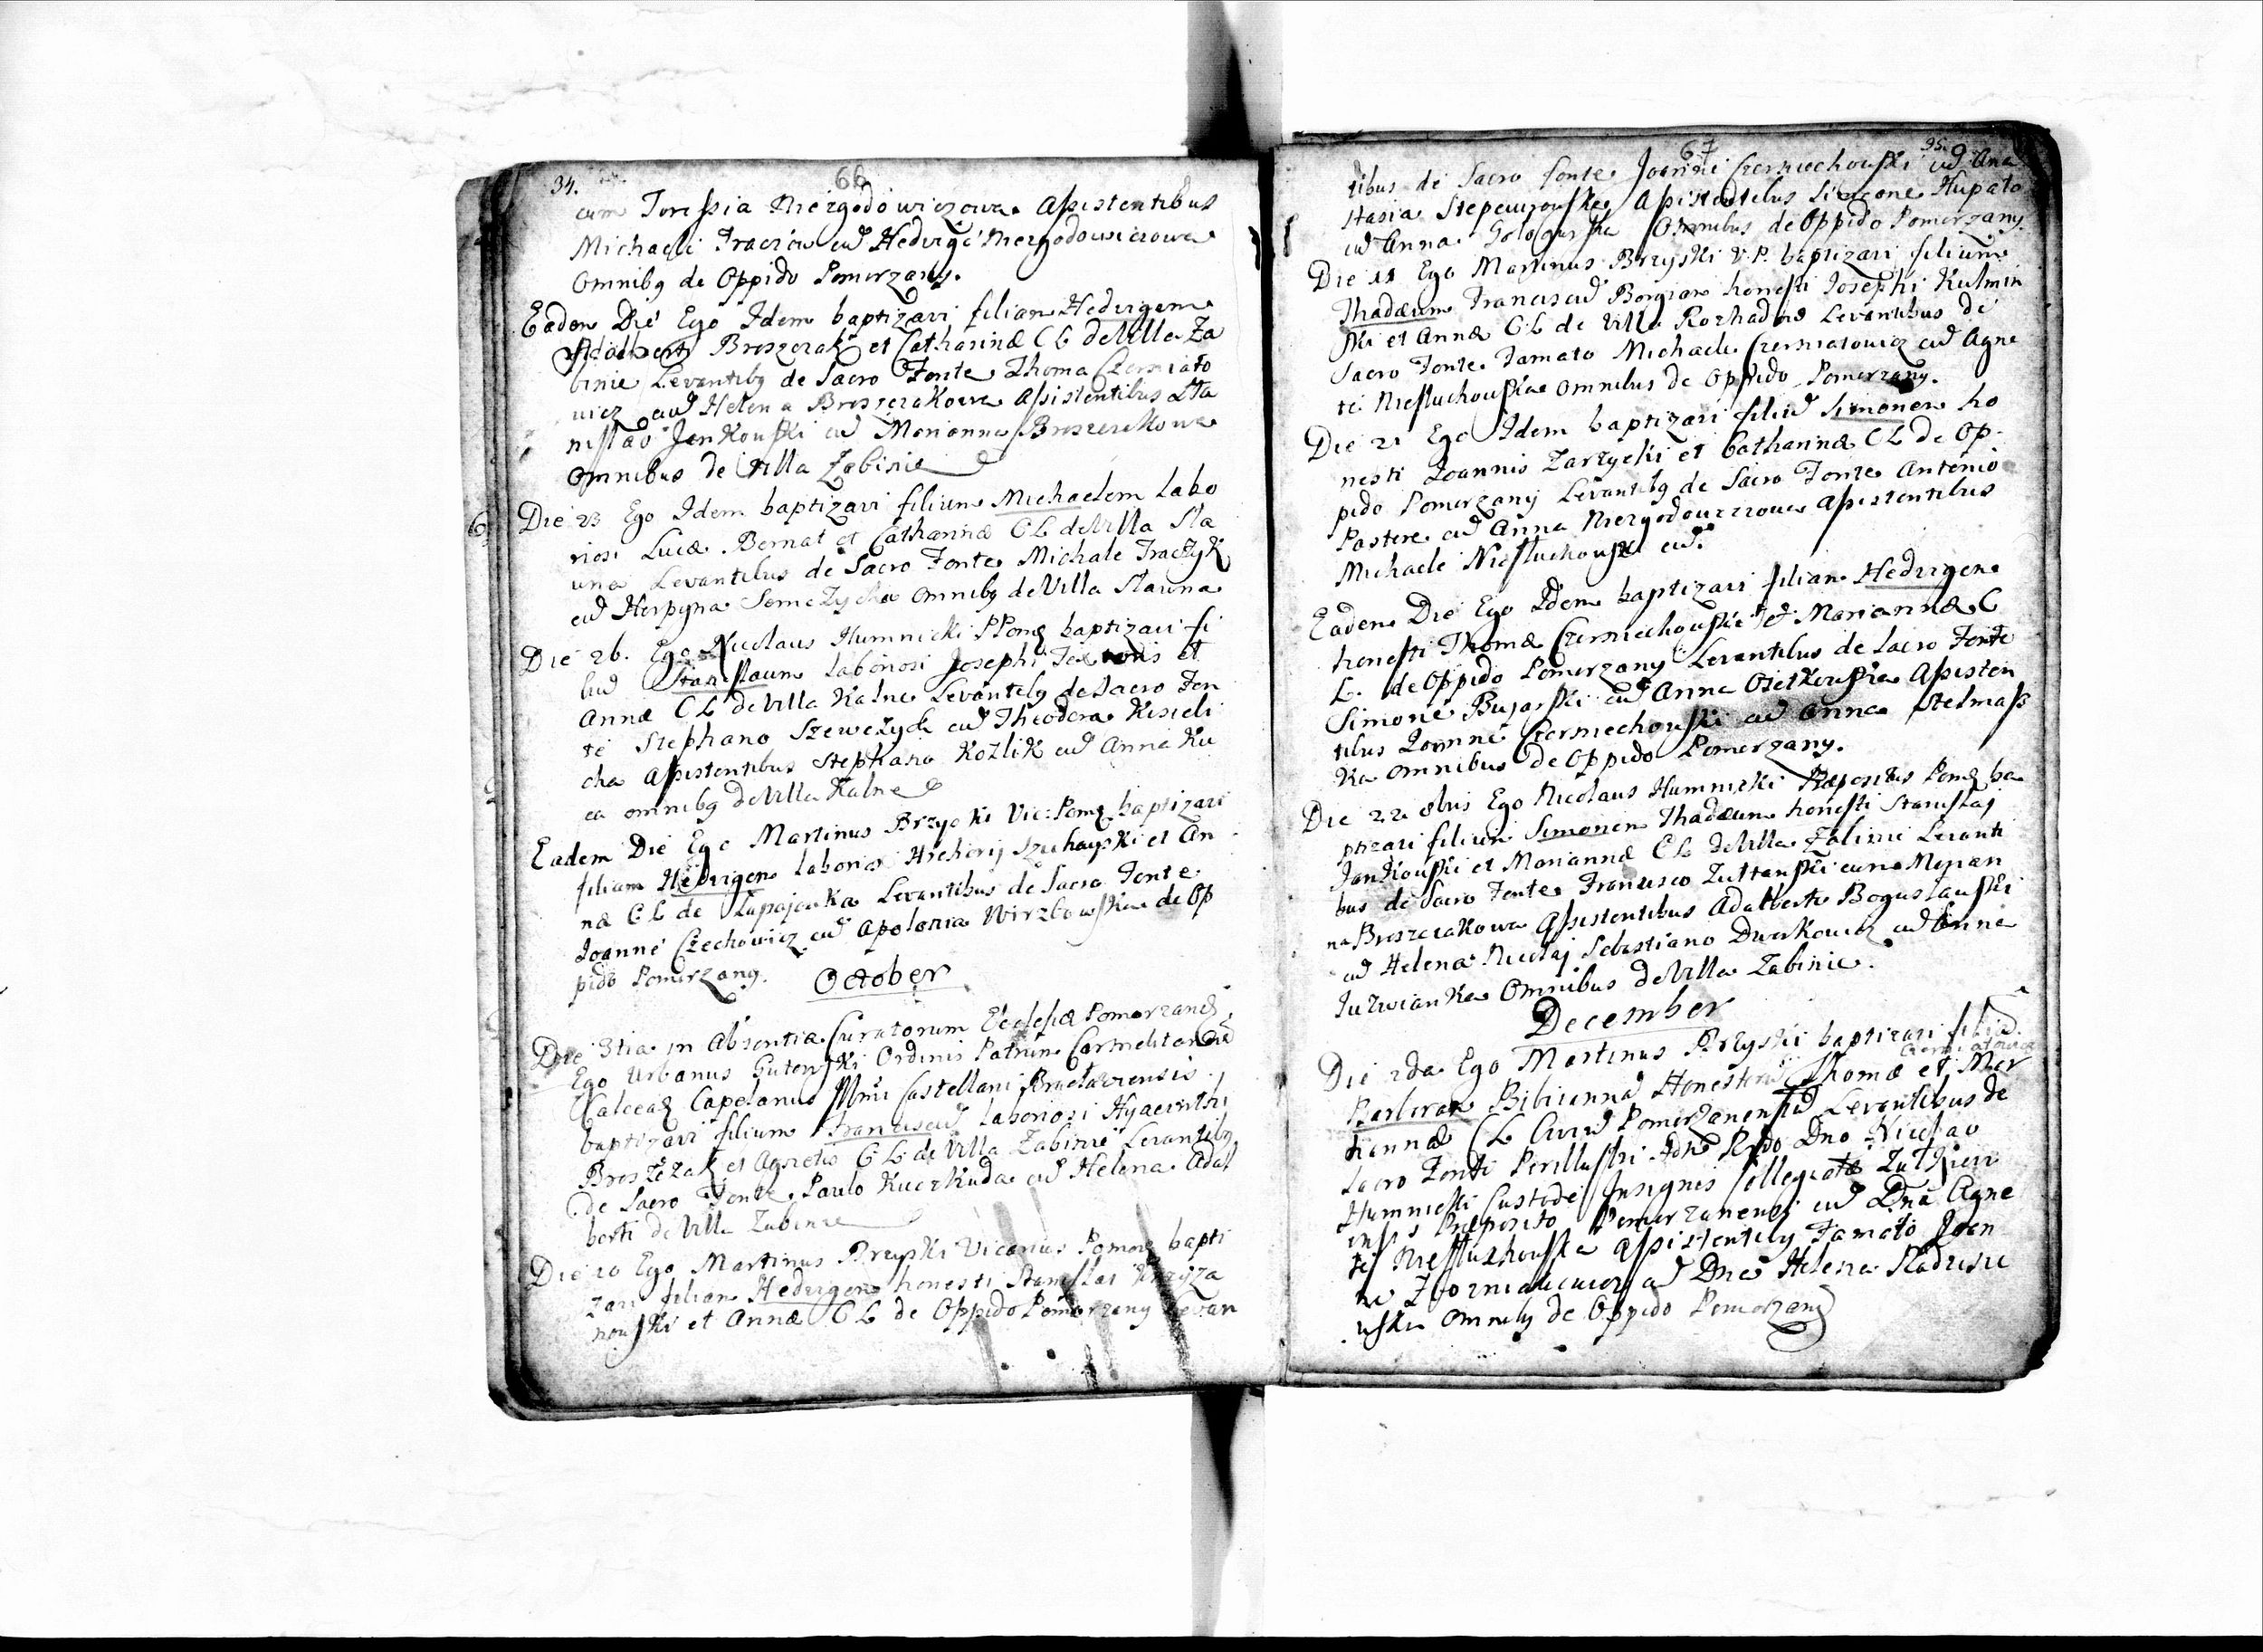 34. 66
cum Teressia Niezgodowiczowa Assistentibus
Michaeli Traczow cu Hedvige Niezgodowiczowa
Omnibq de Oppido Pomorzany.
Eadem Die Ego Idem baptizavi filiam Hedvigem
Adalberti Broszczak et Catharinæ CL de Villa Za
binie Levantibq de Sacro Fonte Thoma Czerniato
wicz cu Helena Broszczakowa Assistentibus Sta
nislao Jankouski cu Marianna Broszczakowa
Omnibus de Villa Zabinie
Die 23 Ego Idem baptizavi filium Michaelem Labo
riosi Lucæ Bernat et Catharinæ CL de Villa Sla
una Levantibus de Sacro Fonte Michale Traczyk
cu Horpyna Omnibq de Villa Slauna
Die 26. Ego Nicolaus Humnicki baptizavi fi
liu Stanislaum laboriosi Josephi et
Annæ CL de Villa Kalne Levantibq de Sacro Fon
te Stephano Szewczyck cu Theodora Kisieli
cha Assistentibus Stephano Kozlik cu Anna Ku
ca omnibq de Villa Kalne
Eadem Die Ego Martinus Brzyski Vic: Pomz baptizavi
filiam Hedvigem laboriosi et An
næ CL de Levantibus de Sacro Fonte
Joanne Czechowicz cu Apolonia Wirzbowska de Op
pido Pomorzany.
October
Die 3tia in Absentia Curatorum Ecclesiæ
Ego Urbanus Ordinis Patrum
Capelanus Castellani
baptizavi filium Franciscu laboriosi Hyacinthi
et Agnetis CL de Villa Zabinie Levantibq
de Sacro Fonte Paulo Kuczkuda cu Helena Adal
berti de Villa Zabinie
Die 10 Ego Martinus Brzyski Vicarius Pomorz bapti
zavi filiam Hedvigem honesti Stanislai
nouski et Annæ CL de Oppido Pomorzany Levan
67 35.
tibus de Sacro fonte Joanne Czerniechouski cu Ana
stasia Assistentibus Simeone Hupalo
cu Anna Omnibus de Oppido Pomorzany.
Die 11 Ego Martinus Brzyski V.P. baptizavi filium
Thadæum Franciscu Borgiam honesti Josephi Kulmin
ski et Annæ CL de Villa Rozhadow Levantibus de
Sacro Fonte Famato Michaele Czerniatowicz cu Agne
te Niesluchouska Omnibus de Oppido Pomorzany.
Die 21 Ego Idem baptizavi filiu Simonem ho
nesti Joannis Zarzycki et Catharinæ CL de Op
pido Pomorzany Levantibq de Sacro Fonte Antonio
Pastere cu Anna Assistentibus
Michaele Niesluchouski cu.
Eadem Die Ego Idem baptizavi filiam Hedvigem
honesti Thomæ Czerniechouski et Mariannæ C
L. de Oppido Pomorzany Levantibus de Sacro Fonte
Simone Bujarski cu Anna Assisten
tibus Joanne Czerniechouski cu Anna Stelmass
ka omnibus de Oppido Pomorzany.
Die 22 Ego Nicolaus Humnicki Præpositus Pomz ba
ptizavi filium Simonem Thadæum honesti Stanislaj
Jankouski et Mariannæ CL de Villa Zabinie Levanti
bus de Sacro Fonte Francisco cum
na Broszczakowa Assistentibus Adalberto Boguslauski
cu Helena Nicolaj Sebastiano Dworkowicz cu Anna
Omnibus de Villa Zabinie.
December
Die 2da Ego Martinus Brzyski baptizavi filia
Czerniatowicz
Barbaram Bibiannam Honestoru Thomæ et Mar
iannæ CL Levantibus de
Sacro Fonte Perillustri Dno Nicolao
Humnicki Custode Insignis Collegiatæ
Præposito Pomorzanensi cu Dna Agne
te Niesluchouska Assistentibq Famato Joan
ne cu Dna Helena
Omnibq de Oppido Pomorzany